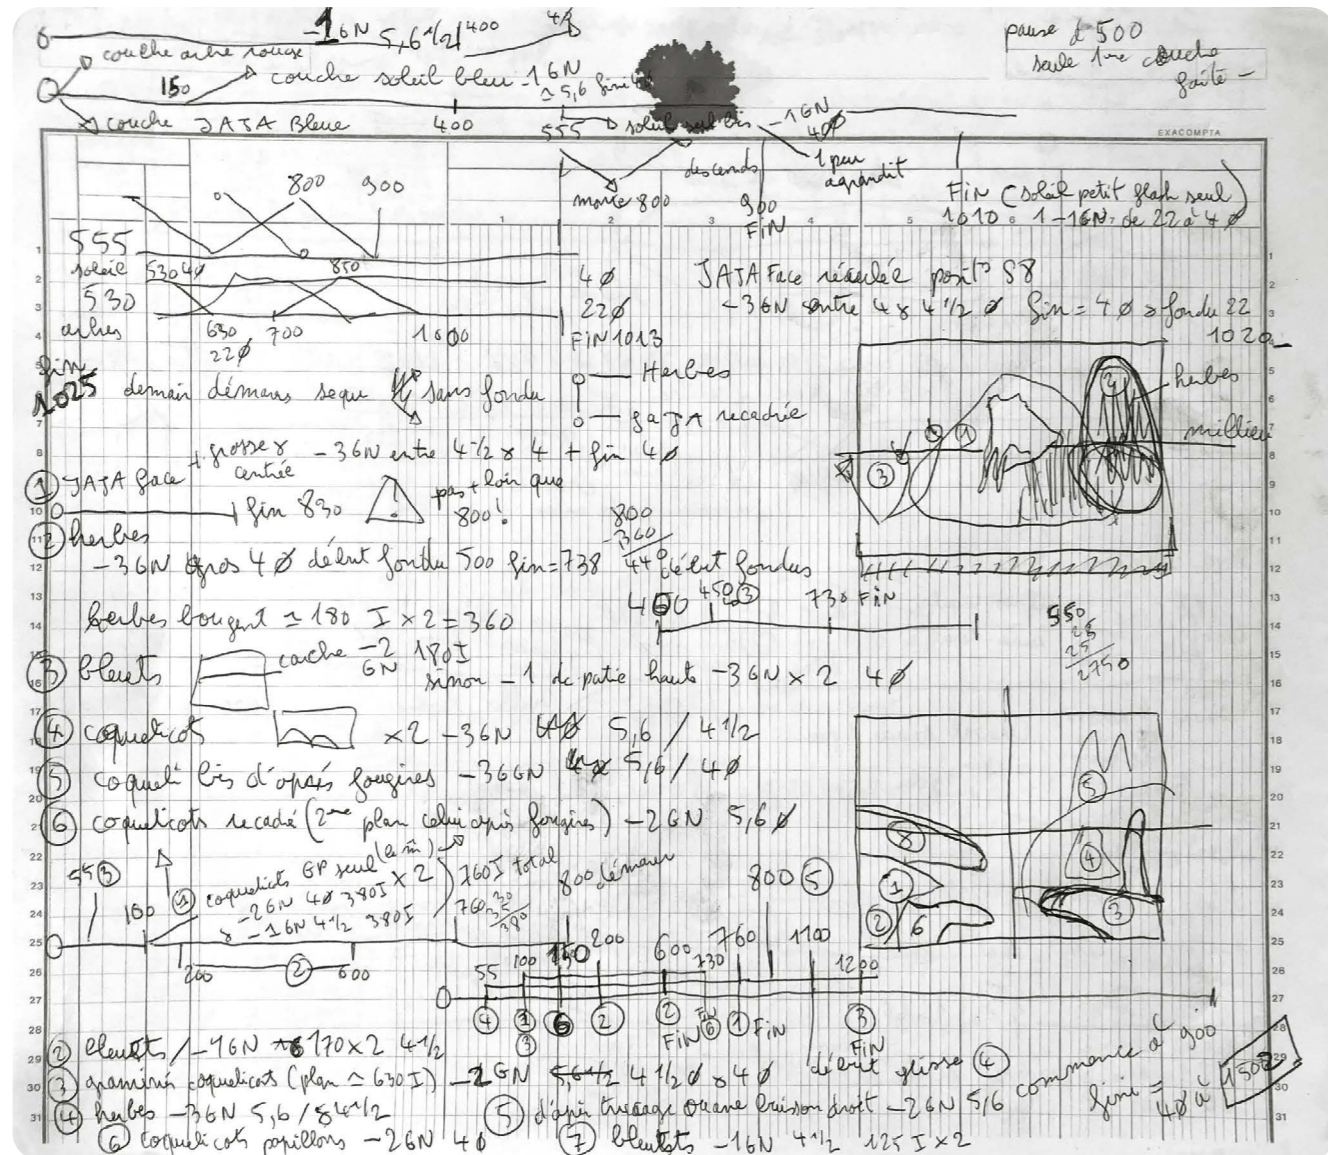 -1GN 5,6 1/2 400 4ø
pause à 500
seule 1ère couche
faite -
couche arbre rouge
150 couche soleil bleu -1GN
≃ 5,6
couche JAJA Bleue 400 555 soleil bis -1GN
4ø
EXACOMPTA
descends 1 peu
agrandit
monte 800 900
FiN
FiN (soleil petit flash seul)
1010 1-1GN de 22 à 4ø
800 900
555
soleil 530 4ø 850 4ø
530 22ø
arbres 630 700 1000 FiN 1013
22ø
JAJA Face reculée posit° S8
-3GN entre 4 & 4 1/2 ø fin = 4ø & fondu 22
1020
fin
1025 demain démarre sans fondu
Herbes
JAJA recadrée
herbes
millieu
① JAJA face + grosse & centrée -3GN entre 4 1/2 & 4 + fin 4ø
0 fin 830 ! pas + loin que
800 !
② herbes
-3GN gros 4ø début fondu 500 fin = 738
800
-360
440 début fondus
400 450 ③ 730 FiN
herbes bougent ≃ 180 I x 2 = 360
550
25
25
2750
③ bleuets cache -2 GN 180I
sinon -1 de partie haute -3GN x 2 4ø
④ coquelicots x2 -3GN 5,6 / 4 1/2
⑤ coqueli bis d'après fougères -3GN 5,6 / 4ø
⑥ coquelicots recadré (2ème plan celui après fougères) -2GN 5,6ø
55 ③ 100 ① coquelicots GP seul (le m̂)
-2GN 4ø 380I x 2
& -1GN 4 1/2 380I
760I total
760
380
800 démarrer
800 ⑤
200 ② 600
55 100 150 200 600 730 760 1100 1200
④ ① ③ ⑥ ② ② FiN FiN ⑥ ① FiN ③ FiN
début glisse ④
② bleuets / -1GN 170x2 4 1/2
③ graminés coquelicots (plan ≃ 630I) -2GN 4 1/2ø & 4ø
④ herbes -3GN 5,6 / & 4 1/2
⑤ d'après trucage buisson droit -2GN 5,6 commence à 900
fini =
4ø à 1500
⑥ coquelicots papillons -2GN 4ø
⑦ bleuets -1GN 4 1/2 125 I x 2